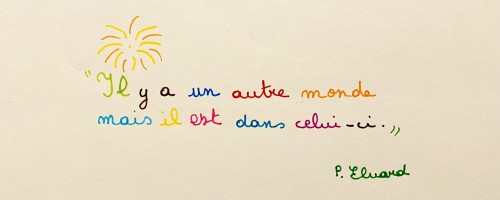 "Il y a un autre monde
mais il est dans celui-ci."
P. Eluard